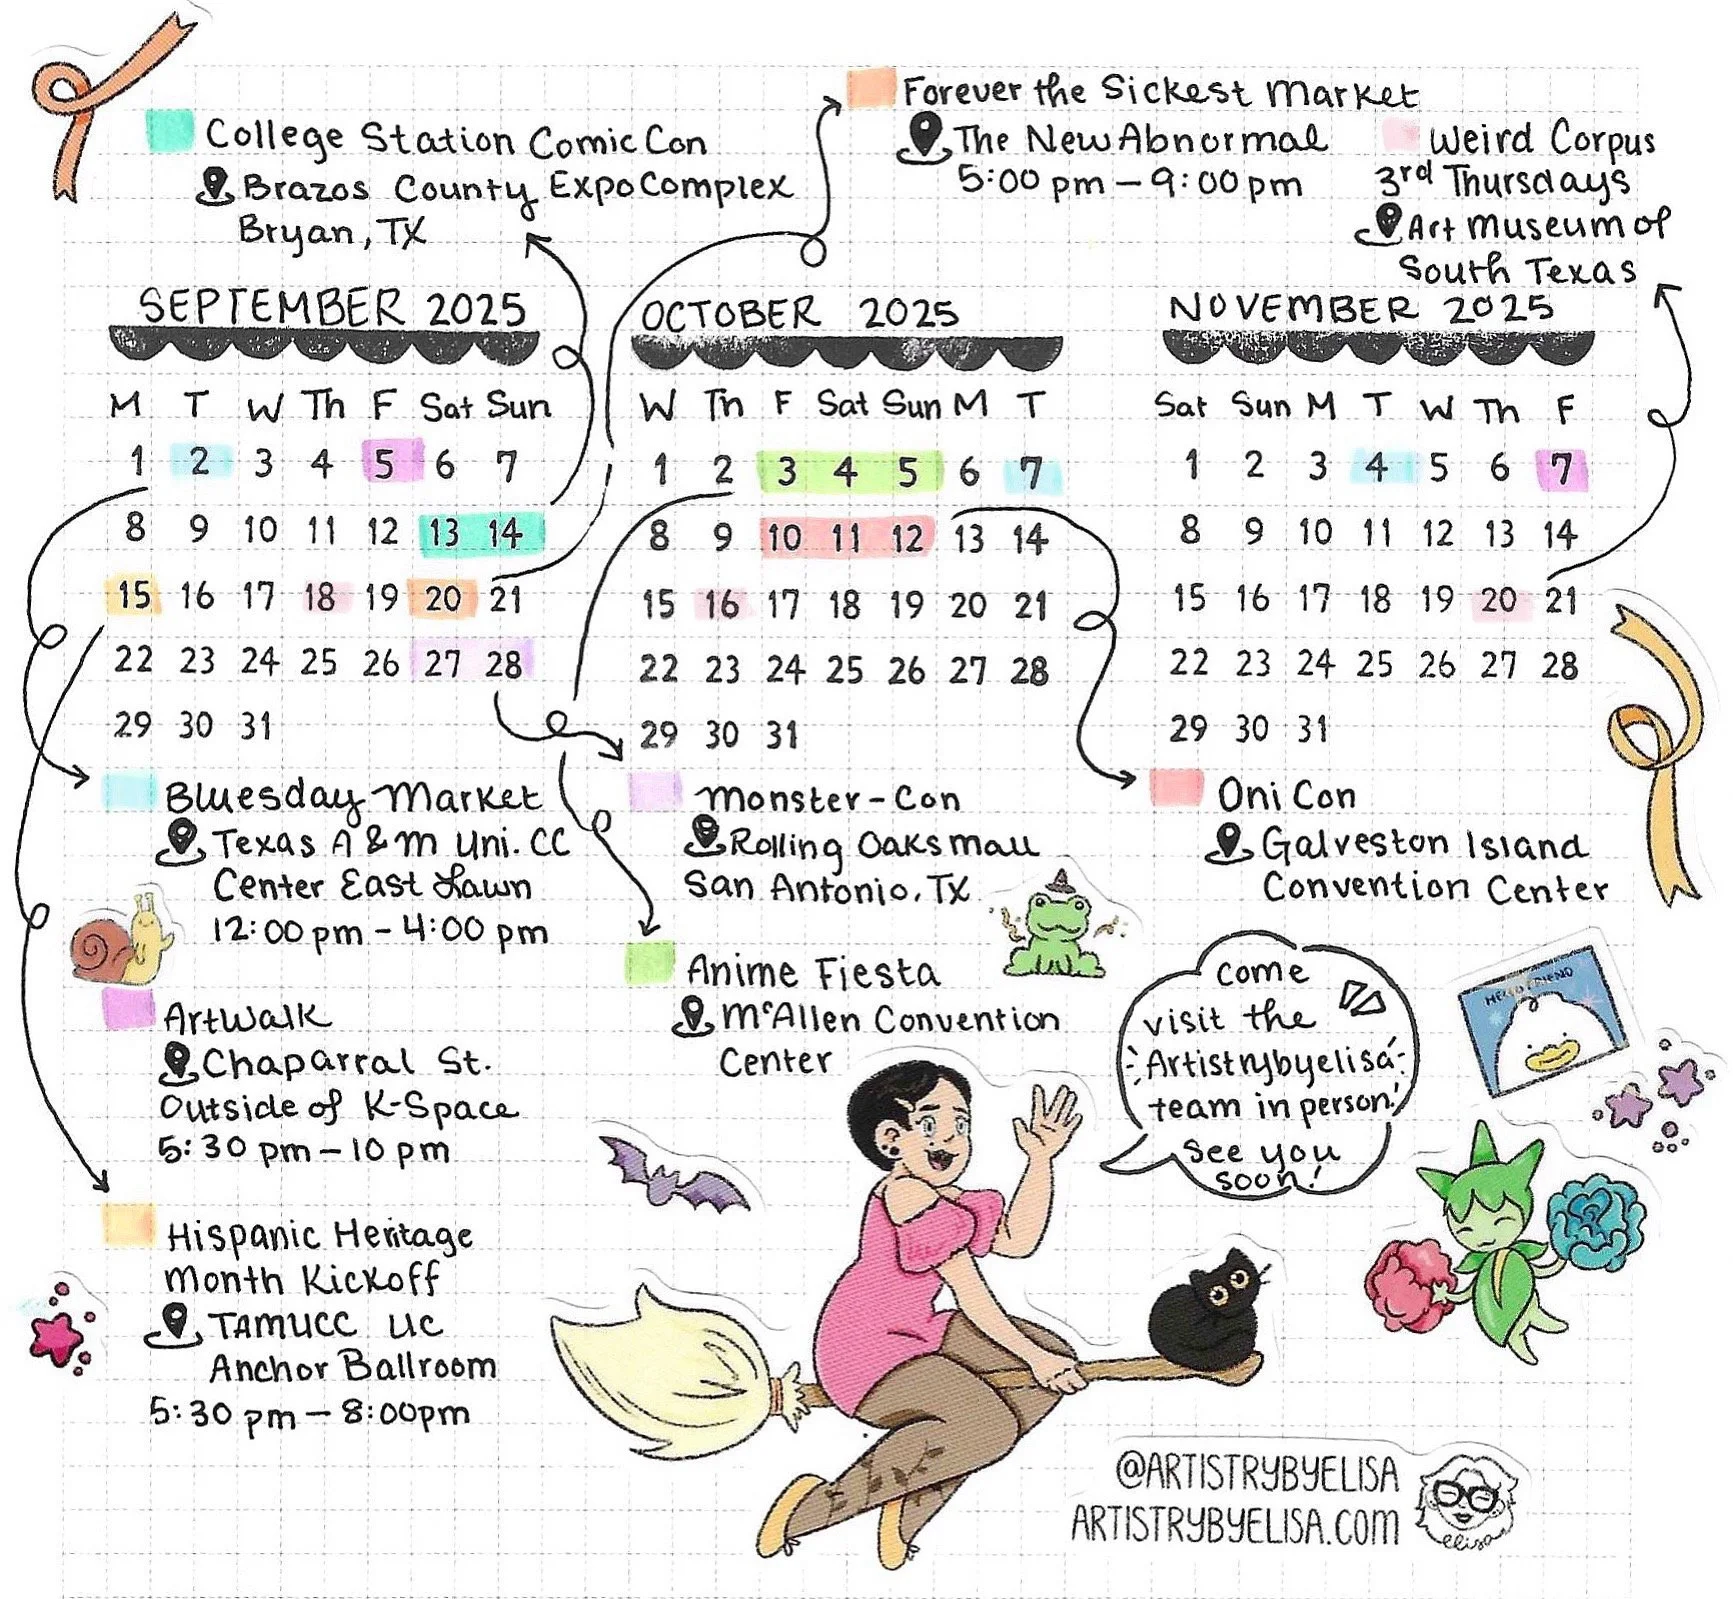 College Station Comic Con
Brazos County Expo Complex
Bryan, TX
Forever the Sickest Market
The New Abnormal
5:00 pm – 9:00 pm
Weird Corpus
3rd Thursdays
Art Museum of
South Texas
SEPTEMBER 2025
M T W Th F Sat Sun
1 2 3 4 5 6 7
8 9 10 11 12 13 14
15 16 17 18 19 20 21
22 23 24 25 26 27 28
29 30 31
OCTOBER 2025
W Th F Sat Sun M T
1 2 3 4 5 6 7
8 9 10 11 12 13 14
15 16 17 18 19 20 21
22 23 24 25 26 27 28
29 30 31
NOVEMBER 2025
Sat Sun M T W Th F
1 2 3 4 5 6 7
8 9 10 11 12 13 14
15 16 17 18 19 20 21
22 23 24 25 26 27 28
29 30 31
Bluesday Market
Texas A & M Uni. CC
Center East Lawn
12:00 pm – 4:00 pm
ArtWalk
Chaparral St.
Outside of K-Space
5:30 pm – 10 pm
Hispanic Heritage
Month Kickoff
TAMUCC UC
Anchor Ballroom
5:30 pm – 8:00pm
Monster-Con
Rolling Oaks Mall
San Antonio, TX
Anime Fiesta
McAllen Convention
Center
Oni Con
Galveston Island
Convention Center
Come
visit the
Artistrybyelisa
team in person!
See you
soon!
HELLO FRIEND
@ARTISTRYBYELISA
ARTISTRYBYELISA.COM
elisa